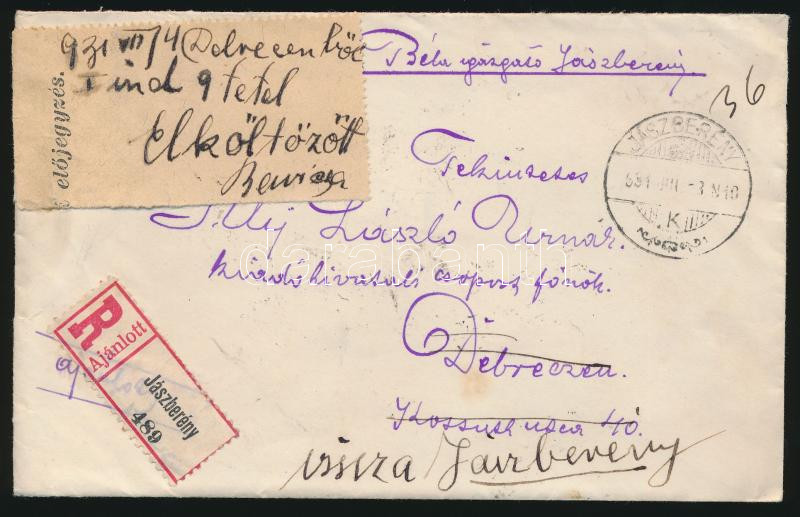 931 VII/4 Debrecen
I ind 9 tétel
Elköltözött
előjegyzés.
Béla igazgató Jászberény
36
JÁSZBERÉNY
931 JUL -3 N10
K
Tekintetes
Illÿ László Urnak.
kiadóhivatali csoport főnök.
Debreczen.
Kossuth utca 40.
vissza Jászberény
R
Ajánlott
Jászberény
489
darabanth